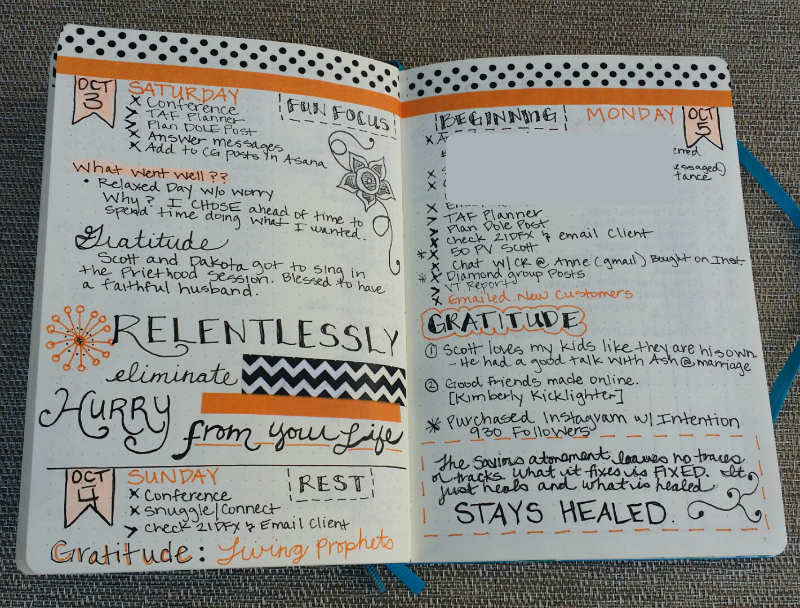 OCT
3
SATURDAY
FUN FOCUS
x Conference
> TAF Planner
x Plan DOLE Post
x Answer messages
x Add to CG posts in Asana
What went well??
• Relaxed Day w/o worry
Why? I CHOSE ahead of time to
spend time doing what I wanted.
Gratitude
Scott and Dakota got to sing in
the Priethood Session. Blessed to have
a faithful husband.
RELENTLESSLY
eliminate
HURRY
from your Life
OCT
4
SUNDAY
REST
x Conference
x Snuggle/Connect
> Check 21DFX & Email Client
Gratitude: Living Prophets
BEGINNING
MONDAY
OCT
5
essaged)
tance
TAF Planner
Plan Dole Post
Check 21DFX & email Client
* 50 PV Scott
Chat w/CR @ Anne (gmail) Bought on Inst.
* Diamond group Posts
VT Report
Emailed New Customers
GRATITUDE
① Scott loves my kids like they are his own
- He had a good talk with Ash @ marriage
② Good Friends made online.
[Kimberly Kicklighter]
* Purchased Instagram w/ Intention
930 Followers
The Saviors atonement leaves no traces
or tracks. What it fixes is FIXED. It
just heals and what is healed
STAYS HEALED.